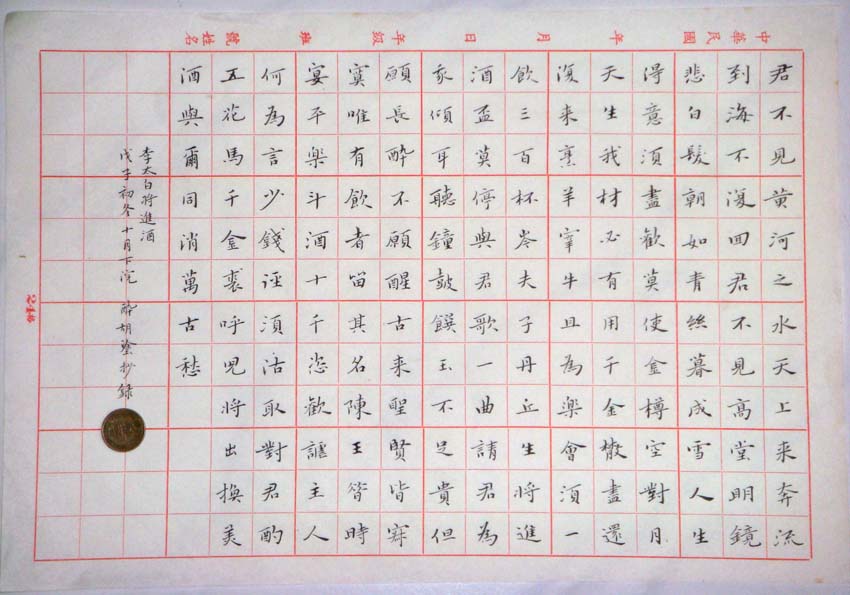 中華民國 年 月 日 年級 班 號 姓名
君不見黃河之水天上来奔流
到海不復回君不見高堂明鏡
悲白髮朝如青絲暮成雪人生
得意須盡歡莫使金樽空對月
天生我材必有用千金散盡還
復来烹羊宰牛且為樂會須一
飲三百杯岑夫子丹丘生將進
酒盃莫停與君歌一曲請君為
我傾耳聽鐘鼓饌玉不足貴但
願長醉不願醒古来聖賢皆寂
寞唯有飲者留其名陳王昔時
宴平樂斗酒十千恣歡謔主人
何為言少錢逕須沽取對君酌
五花馬千金裘呼兒將出換美
酒與爾同消萬古愁
李太白將進酒
戊子初冬十月下浣 醉胡塗抄錄